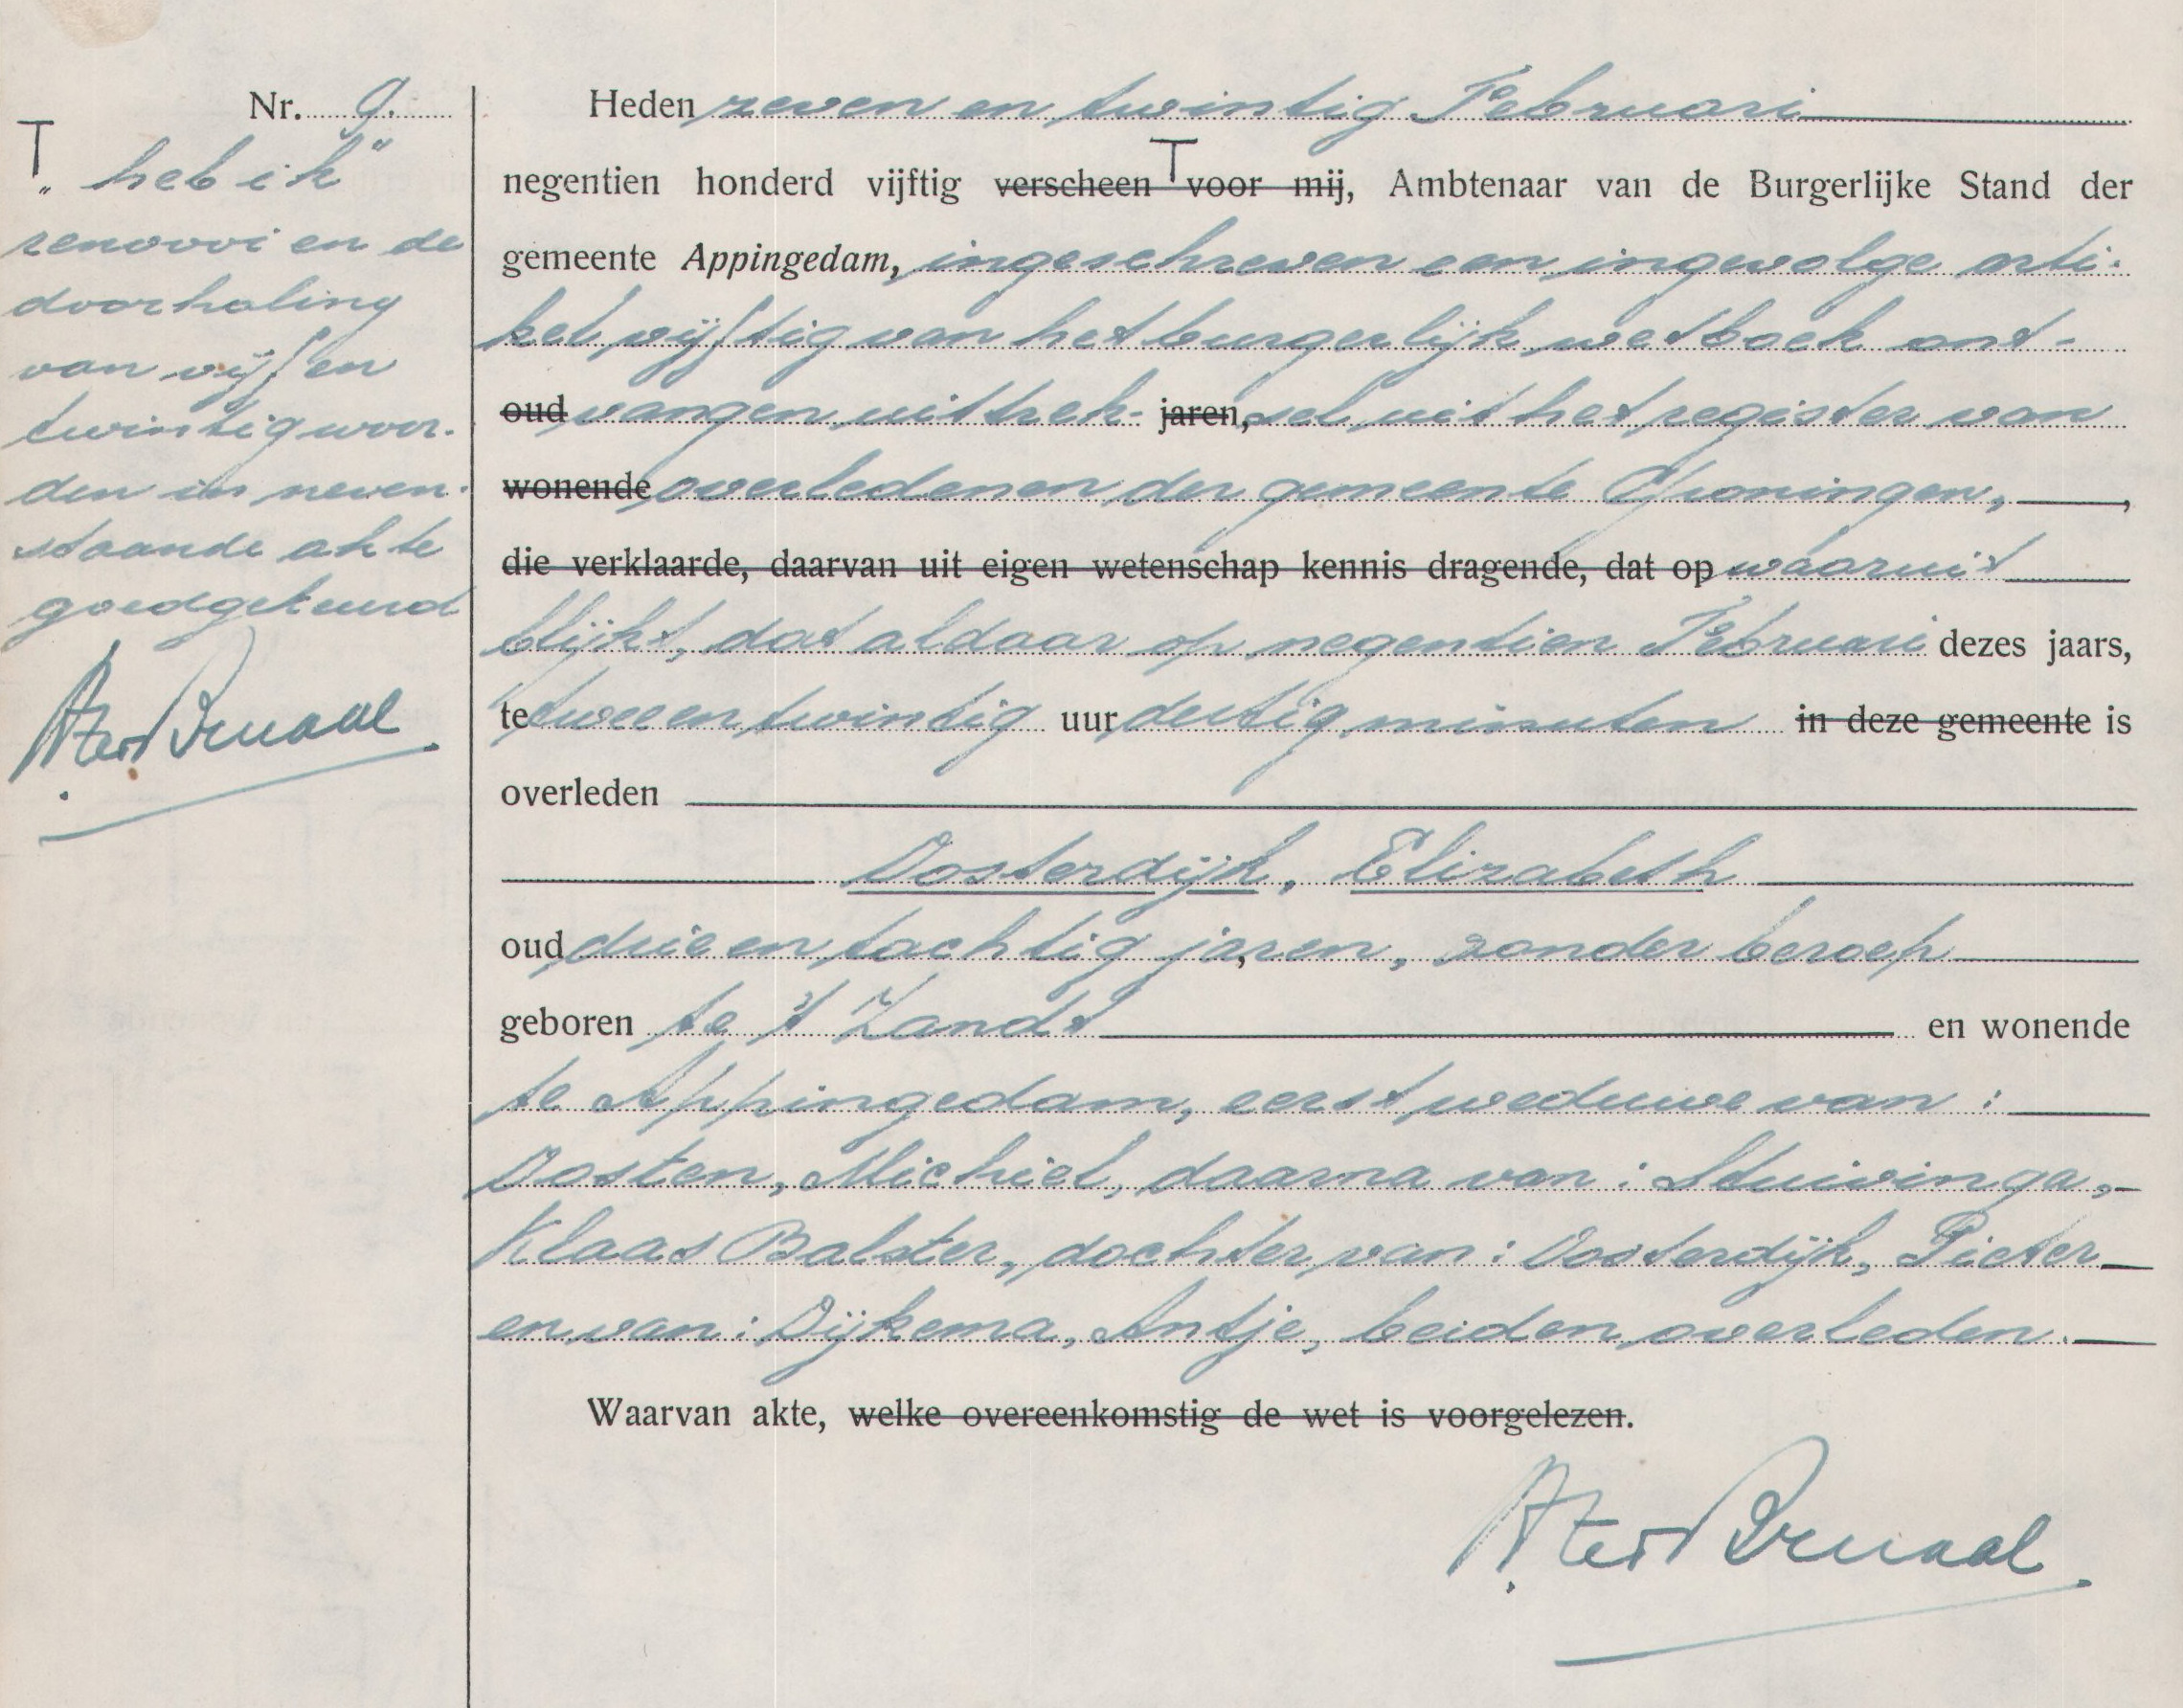 Nr. 9.
T
„ heb ik"
renvooi en de
doorhaling
van vijf en
twintig woor-
den in neven-
staande akte
goedgekeurd
Heden zeven en twintig Februari
negentien honderd vijftig verscheen T voor mij, Ambtenaar van de Burgerlijke Stand der
gemeente Appingedam, ingeschreven een ingevolge arti-
kel vijftig van het burgerlijk wetboek ont-
oud vangen uittrek- jaren, sel uit het register van
wonende overledenen der gemeente Groningen,
die verklaarde, daarvan uit eigen wetenschap kennis dragende, dat op waaruit
blijkt, dat aldaar op negentien Februari dezes jaars,
te twee en twintig uur dertig minuten in deze gemeente is
overleden
Oosterdijk, Elizabeth
oud drie en tachtig jaren, zonder beroep
geboren te 't Zandt en wonende
te Appingedam, eerst weduwe van :
Oosten, Michiel, daarna van : Stuivinga,
Klaas Balster, dochter van : Oosterdijk, Pieter
en van : Dijkema, Antje, beiden overleden.
Waarvan akte, welke overeenkomstig de wet is voorgelezen.